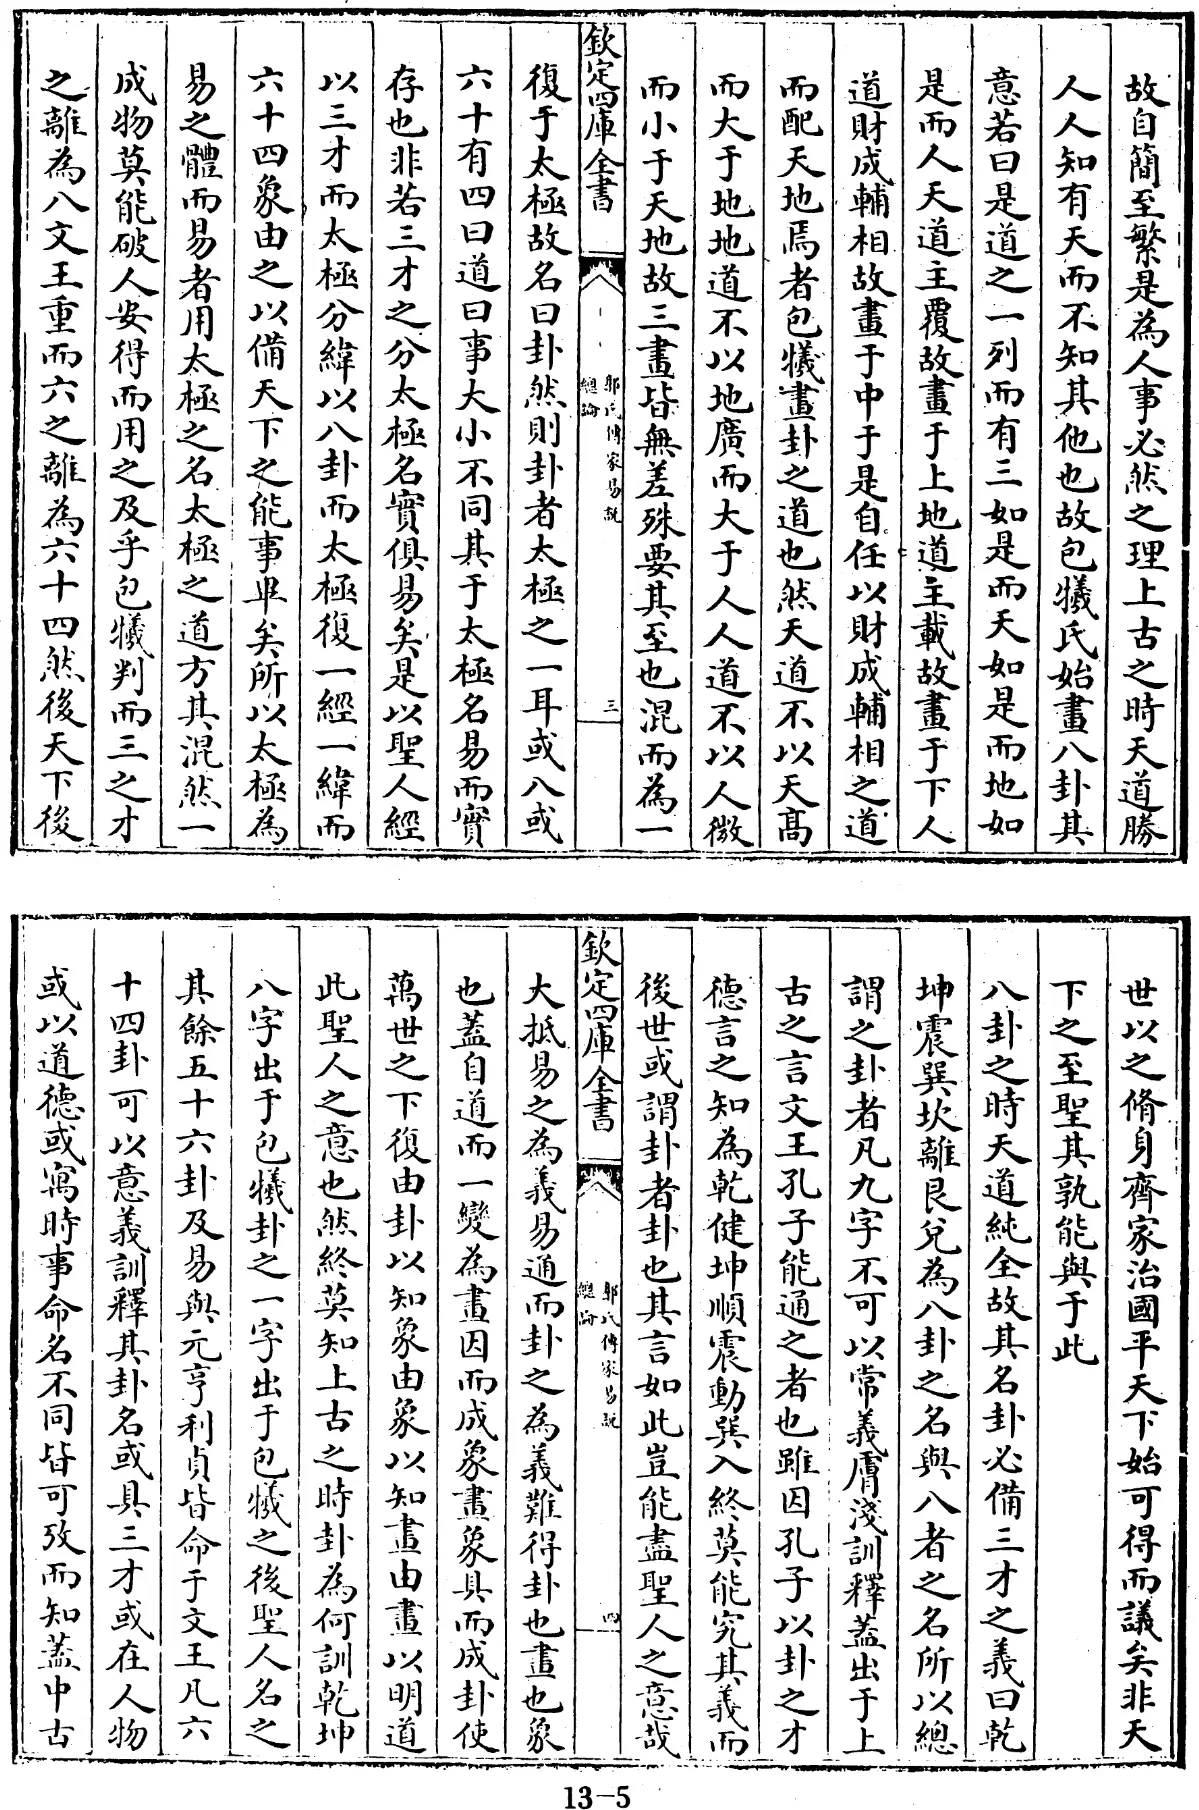 故自簡至繁是為人事必然之理上古之時天道勝
人人知有天而不知其他也故包犧氏始畫八卦其
意若曰是道之一列而有三如是而天如是而地如
是而人天道主覆故畫于上地道主載故畫于下人
道財成輔相故畫于中于是自任以財成輔相之道
而配天地焉者包犧畫卦之道也然天道不以天髙
而大于地地道不以地廣而大于人人道不以人微
而小于天地故三畫皆無差殊要其至也混而為一
欽定四庫全書
郭氏傳家易說
總論
三
復于太極故名曰卦然則卦者太極之一耳或八或
六十有四曰道曰事大小不同其于太極名易而實
存也非若三才之分太極名實俱易矣是以聖人經
以三才而太極分緯以八卦而太極復一經一緯而
六十四象由之以備天下之能事畢矣所以太極為
易之體而易者用太極之名太極之道方其混然一
成物莫能破人安得而用之及乎包犧判而三之才
之離為八文王重而六之離為六十四然後天下後
世以之脩身齊家治國平天下始可得而議矣非天
下之至聖其孰能與于此
八卦之時天道純全故其名卦必備三才之義曰乾
坤震巽坎離艮兌為八卦之名與八者之名所以總
謂之卦者凡九字不可以常義膚淺訓釋蓋出于上
古之言文王孔子能通之者也雖因孔子以卦之才
德言之知為乾健坤順震動巽入終莫能究其義而
後世或謂卦者卦也其言如此豈能盡聖人之意哉
欽定四庫全書
郭氏傳家易說
總論
四
大抵易之為義易通而卦之為義難得卦也畫也象
也蓋自道而一變為畫因而成象畫象具而成卦使
萬世之下復由卦以知象由象以知畫由畫以明道
此聖人之意也然終莫知上古之時卦為何訓乾坤
八字出于包犧卦之一字出于包犧之後聖人名之
其餘五十六卦及易與元亨利貞皆命于文王凡六
十四卦可以意義訓釋其卦名或具三才或在人物
或以道德或寓時事命名不同皆可攷而知蓋中古
13-5